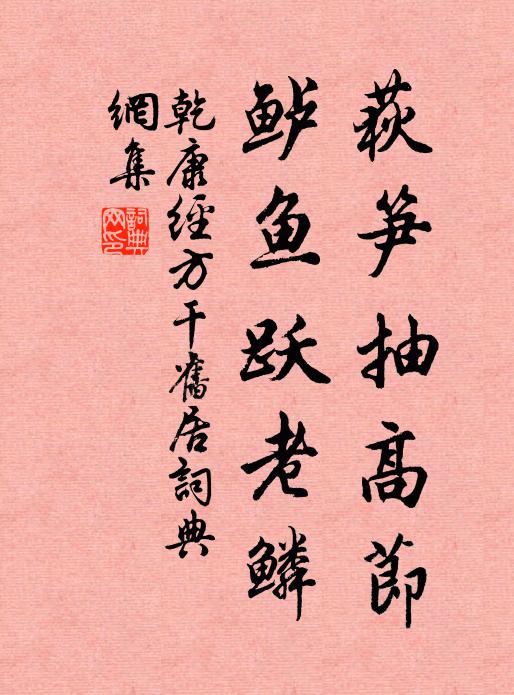 荻笋抽高節
鲈鱼跃老鳞
乾康經方干舊居詞典
網集
詞典網印